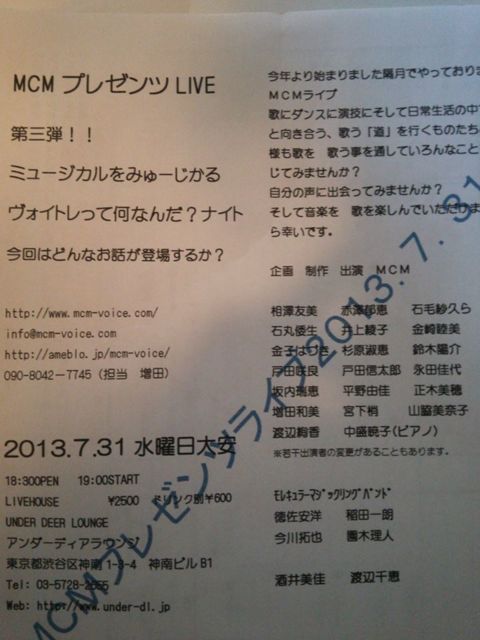 MCM プレゼンツ LIVE
第三弾！！
ミュージカルをみゅーじかる
ヴォイトレって何なんだ？ナイト
今回はどんなお話が登場するか？
http://www.mcm-voice.com/
info@mcm-voice.com
http://ameblo.jp/mcm-voice/
090-8042-7745 (担当 増田)
2013.7.31 水曜日大安
18:30OPEN 19:00START
LIVEHOUSE ¥2500 ドリンク別¥600
UNDER DEER LOUNGE
アンダーディアラウンジ
東京都渋谷区神南 1-3-4 神南ビル B1
Tel: 03-5728-2655
Web: http://www.under-dl.jp
今年より始まりました隔月でやっており
ＭＣＭライブ
歌にダンスに演技にそして日常生活の中
と向き合う、歌う「道」を行くものたち
様も歌を 歌う事を通していろんなこと
じてみませんか？
自分の声に出会ってみませんか？
そして音楽を 歌を楽しんでいただけ
ら幸いです。
企画 制作 出演 ＭＣＭ
相澤友美 赤澤郁恵 石毛紗久ら
石丸倭生 井上綾子 金崎睦美
金子はづき 杉原淑恵 鈴木陽介
戸田咲良 戸田信太郎 永田佳代
坂内瑞恵 平野由佳 正木美穂
増田和美 宮下梢 山脇美奈子
渡辺絢香 中盛暁子(ピアノ)
※若干出演者の変更があることもあります。
ﾓﾚｷｭﾗｰﾏｼﾞｯｸﾘﾝｸﾞﾊﾞﾝﾄﾞ
徳佐安洋 稲田一朗
今川拓也 園木理人
酒井美佳 渡辺千恵
MCMプレゼンツライブ2013.7.31